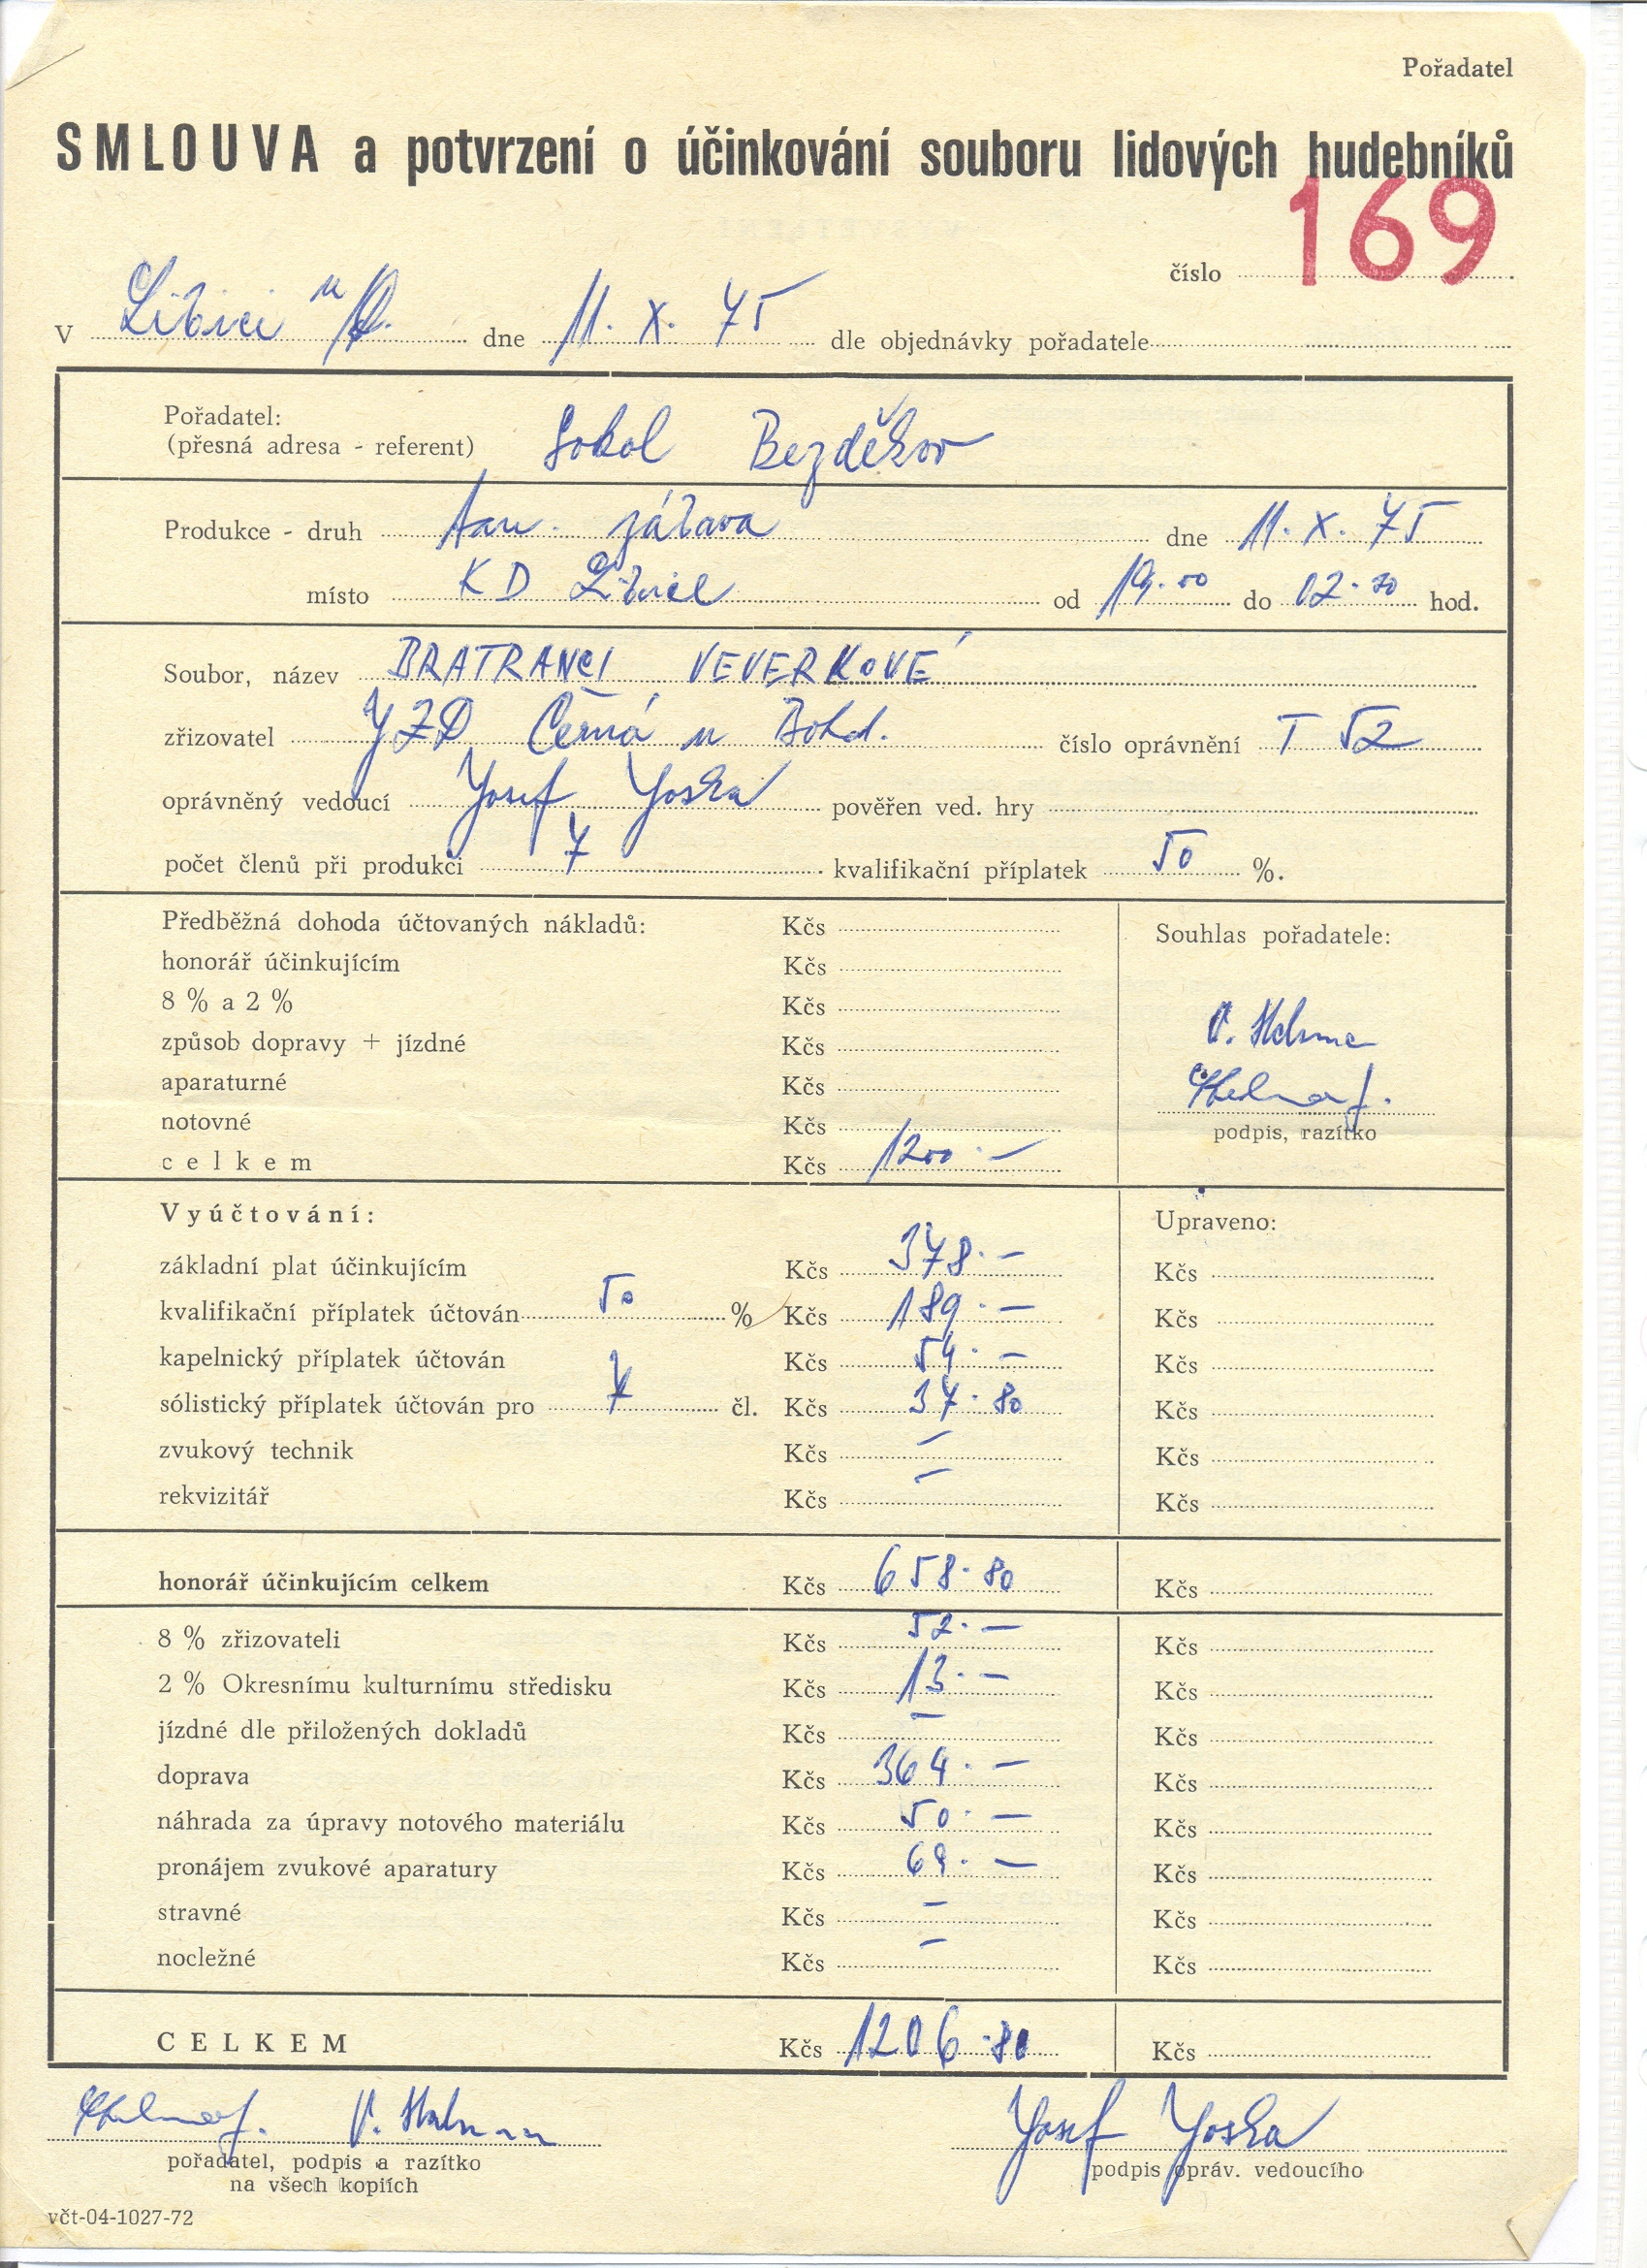 Pořadatel
SMLOUVA a potvrzení o účinkování souboru lidových hudebníků
číslo 169
V Libici n/D. dne 11. X. 75 dle objednávky pořadatele
Pořadatel:
(přesná adresa - referent) Sokol Bezděkov
Produkce - druh tan. zábava dne 11. X. 75
místo KD Libice od 19.00 do 02.30 hod.
Soubor, název BRATRANCI VEVERKOVÉ
zřizovatel JZD Černá u Bohd. číslo oprávnění T 52
oprávněný vedoucí Josef Joska pověřen ved. hry
počet členů při produkci 7 kvalifikační příplatek 50 %.
Předběžná dohoda účtovaných nákladů: Kčs Souhlas pořadatele:
honorář účinkujícím Kčs
8 % a 2 % Kčs
způsob dopravy + jízdné Kčs
aparaturné Kčs
notovné Kčs podpis, razítko
celkem Kčs 1200.—
Vyúčtování: Upraveno:
základní plat účinkujícím Kčs 378.— Kčs
kvalifikační příplatek účtován 50 % Kčs 189.— Kčs
kapelnický příplatek účtován Kčs 54.— Kčs
sólistický příplatek účtován pro čl. Kčs 37.80 Kčs
zvukový technik Kčs — Kčs
rekvizitář Kčs — Kčs
honorář účinkujícím celkem Kčs 658.80 Kčs
8 % zřizovateli Kčs 52.— Kčs
2 % Okresnímu kulturnímu středisku Kčs 13.— Kčs
jízdné dle přiložených dokladů Kčs — Kčs
doprava Kčs 364.— Kčs
náhrada za úpravy notového materiálu Kčs 50.— Kčs
pronájem zvukové aparatury Kčs 69.— Kčs
stravné Kčs — Kčs
nocležné Kčs — Kčs
CELKEM Kčs 1206.80 Kčs
Josef Joska
pořadatel, podpis a razítko podpis opráv. vedoucího
na všech kopiích
včt-04-1027-72